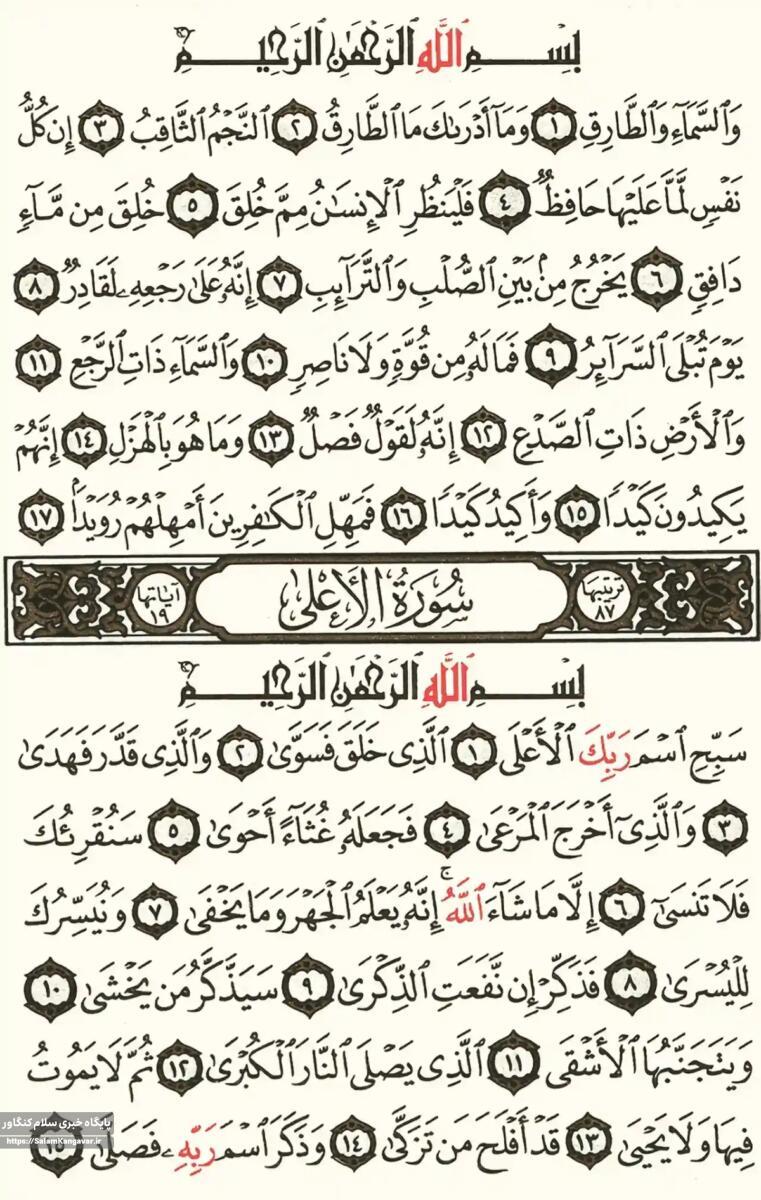 بِسْمِ ٱللَّهِ ٱلرَّحْمَٰنِ ٱلرَّحِيمِ
وَٱلسَّمَآءِ وَٱلطَّارِقِ ١ وَمَآ أَدْرَىٰكَ مَا ٱلطَّارِقُ ٢ ٱلنَّجْمُ ٱلثَّاقِبُ ٣ إِن كُلُّ
نَفْسٍ لَّمَّا عَلَيْهَا حَافِظٌ ٤ فَلْيَنظُرِ ٱلْإِنسَٰنُ مِمَّ خُلِقَ ٥ خُلِقَ مِن مَّآءٍ
دَافِقٍ ٦ يَخْرُجُ مِنۢ بَيْنِ ٱلصُّلْبِ وَٱلتَّرَآئِبِ ٧ إِنَّهُۥ عَلَىٰ رَجْعِهِۦ لَقَادِرٌ ٨
يَوْمَ تُبْلَى ٱلسَّرَآئِرُ ٩ فَمَا لَهُۥ مِن قُوَّةٍ وَلَا نَاصِرٍ ١٠ وَٱلسَّمَآءِ ذَاتِ ٱلرَّجْعِ ١١
وَٱلْأَرْضِ ذَاتِ ٱلصَّدْعِ ١٢ إِنَّهُۥ لَقَوْلٌ فَصْلٌ ١٣ وَمَا هُوَ بِٱلْهَزْلِ ١٤ إِنَّهُمْ
يَكِيدُونَ كَيْدًا ١٥ وَأَكِيدُ كَيْدًا ١٦ فَمَهِّلِ ٱلْكَٰفِرِينَ أَمْهِلْهُمْ رُوَيْدًۢا ١٧
ترتيبها ٨٧ سُورَةُ الأَعْلَىٰ آياتها ١٩
بِسْمِ ٱللَّهِ ٱلرَّحْمَٰنِ ٱلرَّحِيمِ
سَبِّحِ ٱسْمَ رَبِّكَ ٱلْأَعْلَى ١ ٱلَّذِى خَلَقَ فَسَوَّىٰ ٢ وَٱلَّذِى قَدَّرَ فَهَدَىٰ
٣ وَٱلَّذِىٓ أَخْرَجَ ٱلْمَرْعَىٰ ٤ فَجَعَلَهُۥ غُثَآءً أَحْوَىٰ ٥ سَنُقْرِئُكَ
فَلَا تَنسَىٰٓ ٦ إِلَّا مَا شَآءَ ٱللَّهُ ۚ إِنَّهُۥ يَعْلَمُ ٱلْجَهْرَ وَمَا يَخْفَىٰ ٧ وَنُيَسِّرُكَ
لِلْيُسْرَىٰ ٨ فَذَكِّرْ إِن نَّفَعَتِ ٱلذِّكْرَىٰ ٩ سَيَذَّكَّرُ مَن يَخْشَىٰ ١٠
وَيَتَجَنَّبُهَا ٱلْأَشْقَى ١١ ٱلَّذِى يَصْلَى ٱلنَّارَ ٱلْكُبْرَىٰ ١٢ ثُمَّ لَا يَمُوتُ
فِيهَا وَلَا يَحْيَىٰ ١٣ قَدْ أَفْلَحَ مَن تَزَكَّىٰ ١٤ وَذَكَرَ ٱسْمَ رَبِّهِۦ فَصَلَّىٰ ١٥
پایگاه خبری سلام کنگاور
https://SalamKangavar.ir